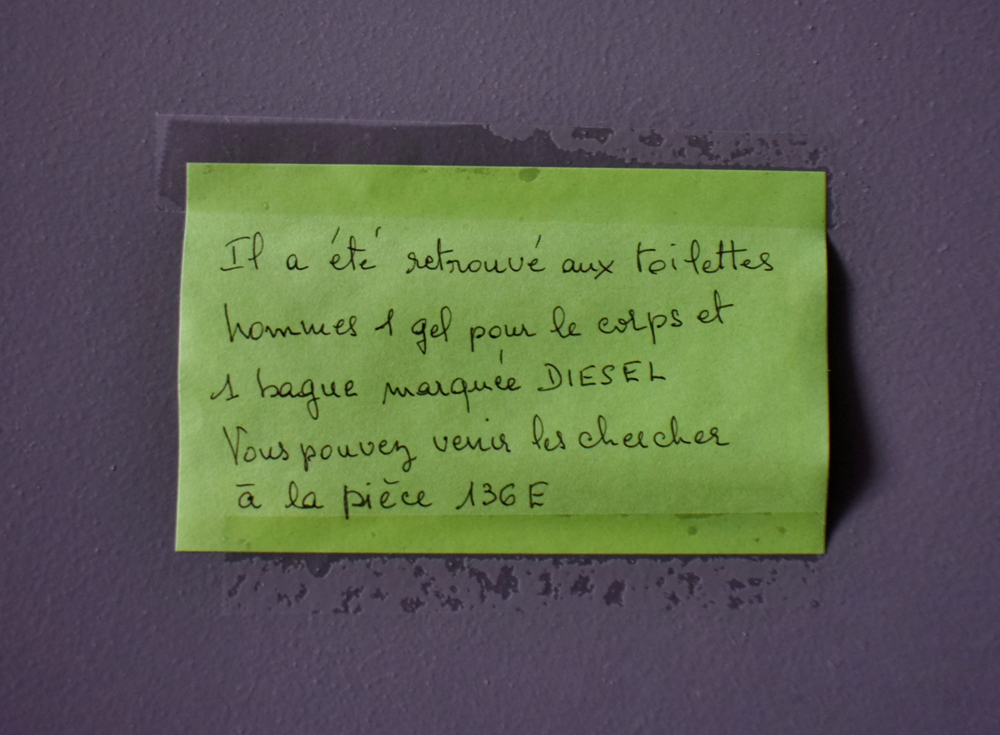 Il a été retrouvé aux toilettes
hommes 1 gel pour le corps et
1 bague marquée DIESEL
Vous pouvez venir les chercher
à la pièce 136E